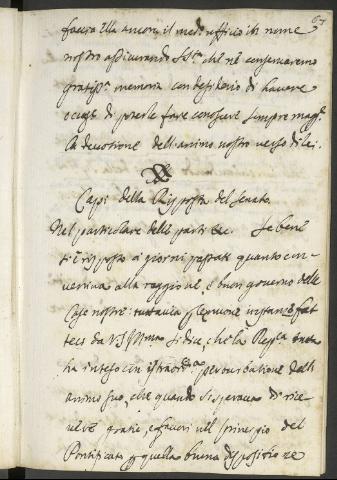 67
faccia Ella ancora il med.o ufficio in nome
nostro assicurando S. S.tà che ne conservaremo
gratiss.a memoria con desiderio di havere
occ.ne di poterle fare conoscere sempre magg.e
la devotione dell'animo nostro verso di lei.
Capi della Risposta del Senato.
Nel particolare delle parti &c. Se bene
ti è risposto a' giorni passati quanto con-
veniva alla raggione, e buon governo delle
Cose nostre: tuttavia instanze fat
teci da V. S. Ill.ma si dice, che la Rep.ca
ha inteso con istraord.a perturbatione dell
animo suo, che quando si sperava di rice
vere gratie, e favori nel principio del
Pontificato quella buona dispositione